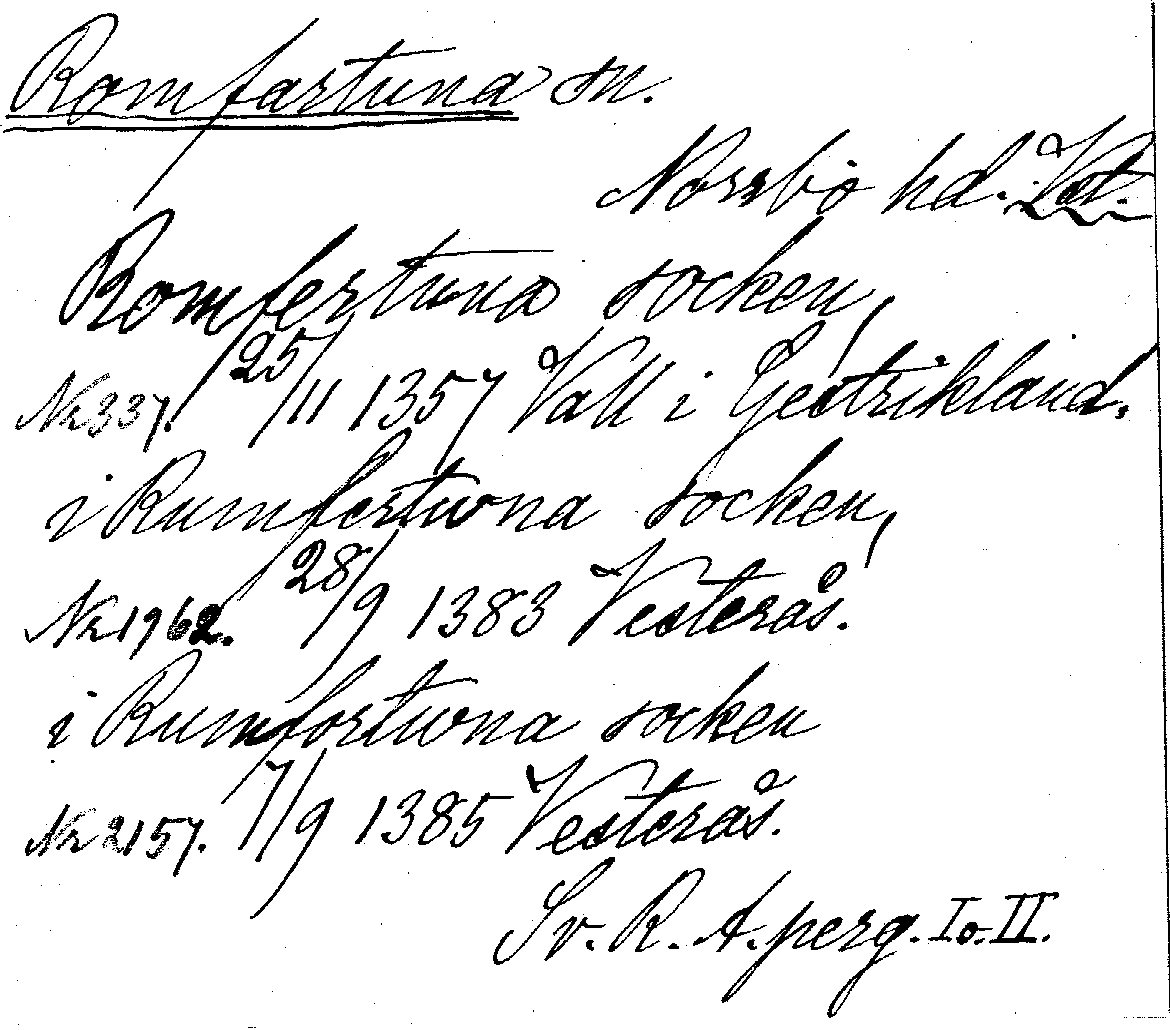 Romfartuna sn.
Norrbo hd. Vst.
Romfertuna socken,
Nr 337. 25/11 1357 Vall i Gestrikland.
i Rumfertwna socken,
Nr 1962. 28/9 1383 Vesterås.
i Rumfortwna socken
Nr 2157. 7/9 1385 Vesterås.
Sv. R. A. perg. I o. II.